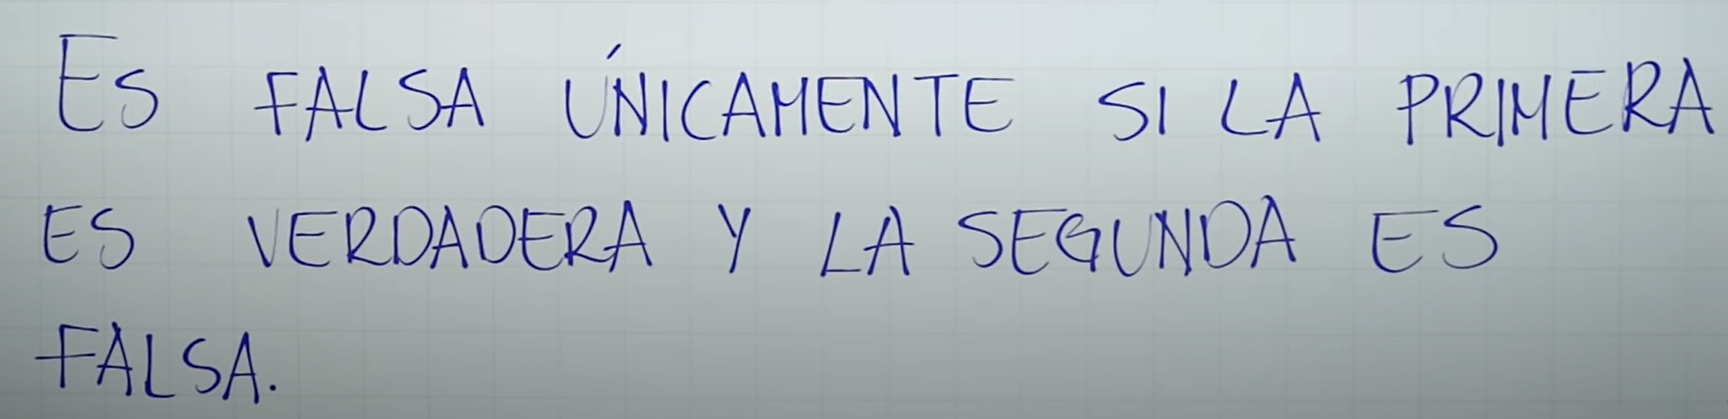 ES FALSA ÚNICAMENTE SI LA PRIMERA
ES VERDADERA Y LA SEGUNDA ES
FALSA.